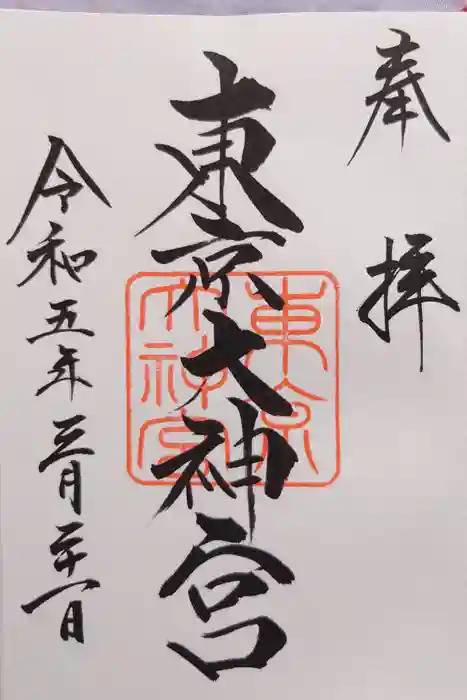 奉拝
東京大神宮
令和五年三月二十一日
東京
大神宮